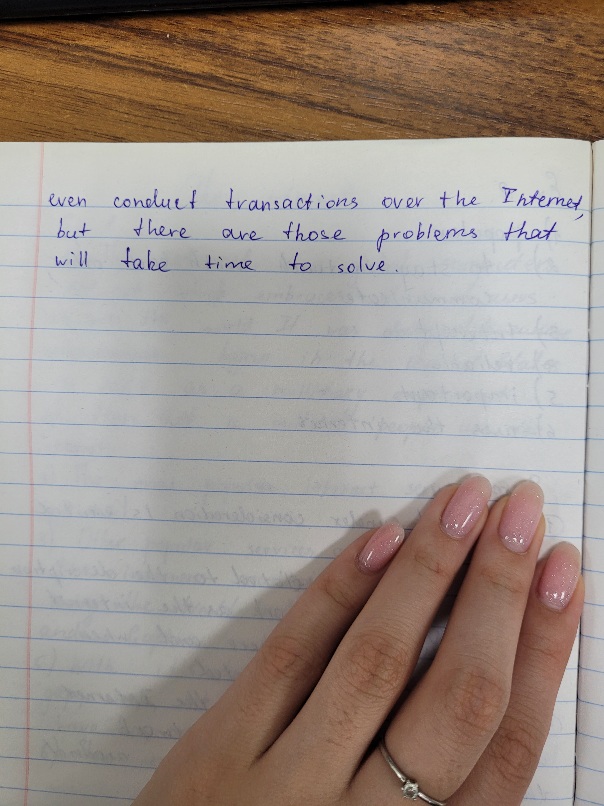 even conduct transactions over the Internet,
but there are those problems that
will take time to solve.